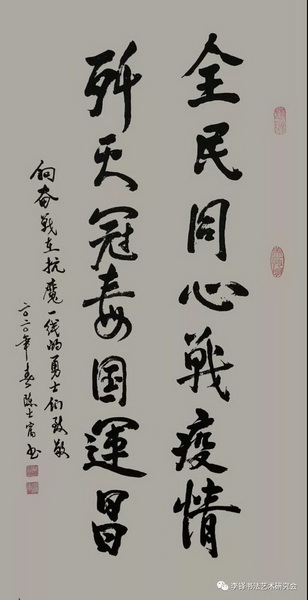 全民同心战疫情
歼灭冠毒国運昌
向奋战在抗魔一线的勇士们致敬
二〇二〇年春陈士富书
李铎书法艺术研究会